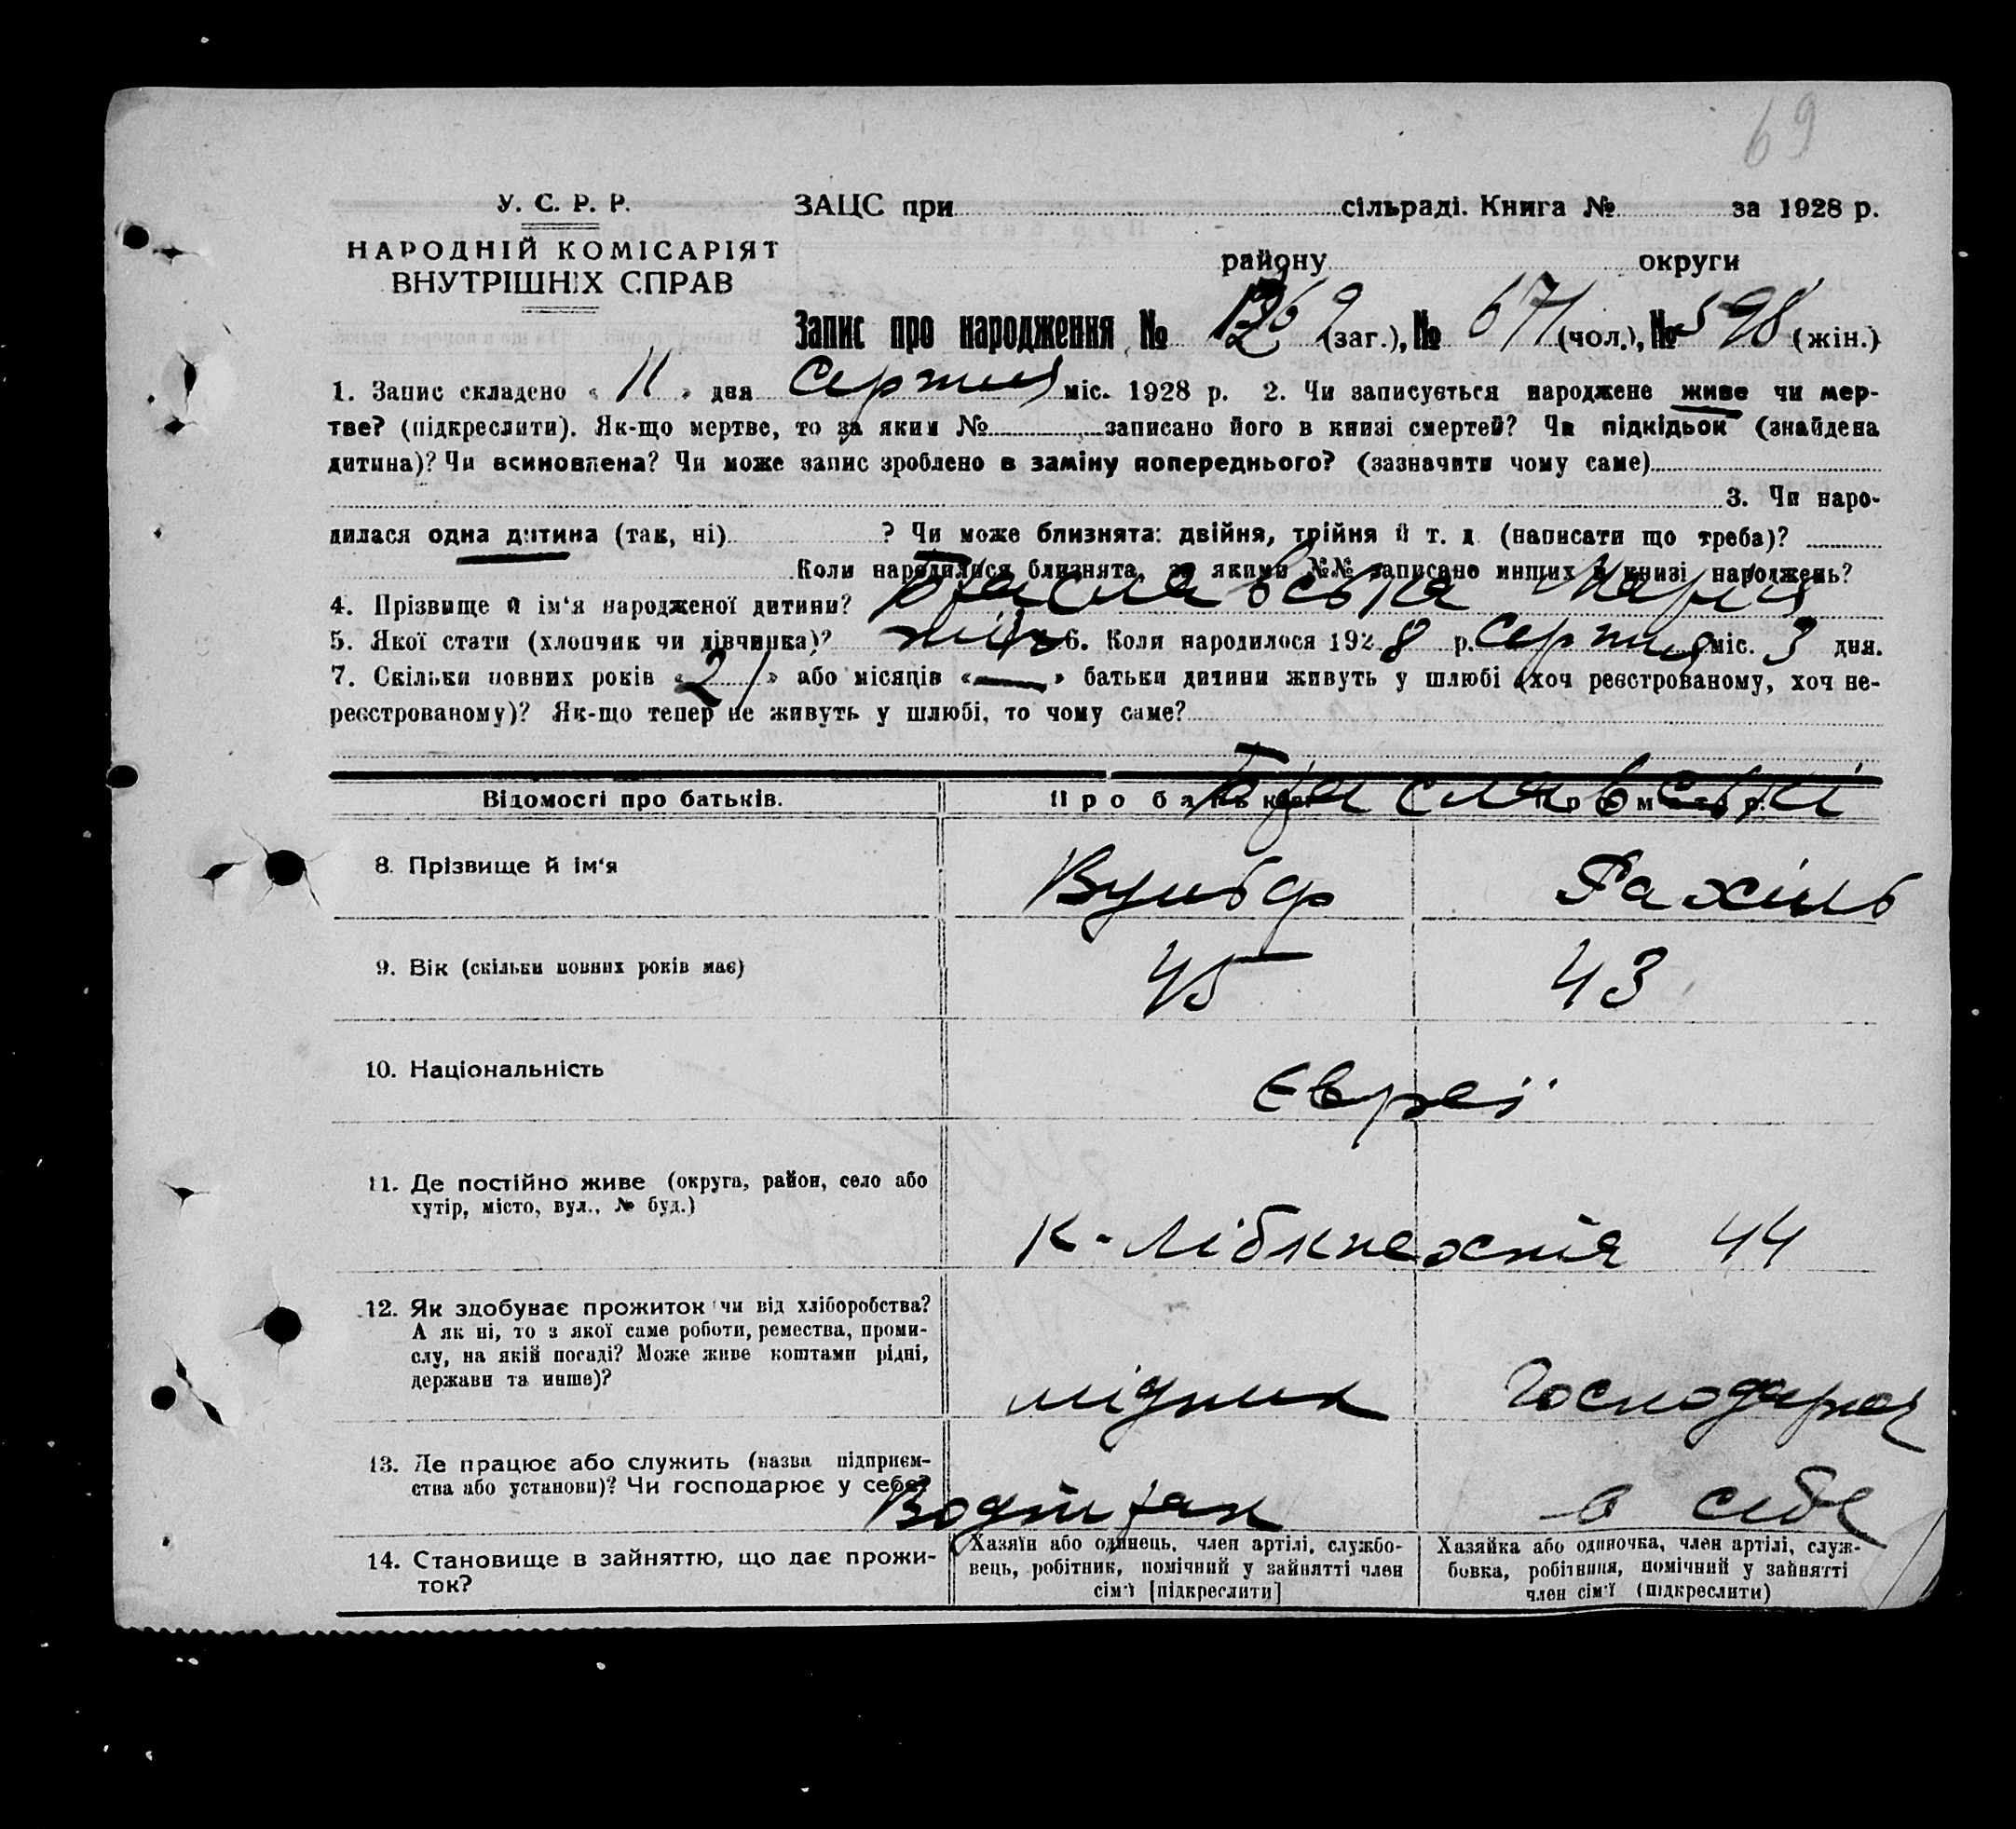 69
У. С. Р. Р.
НАРОДНІЙ КОМІСАРІЯТ
ВНУТРІШНІХ СПРАВ
ЗАЦС при сільраді. Книга № за 1928 р.
району округи
Запис про народження № 1269 (заг.), № 671 (чол.), № 598 (жін.)
1. Запис складено « 11 » дня Серпня міс. 1928 р. 2. Чи записується народжене живе чи мер-
тве? (підкреслити). Як-що мертве, то за яким № записано його в книзі смертей? Чи підкідьок (знайдена
дитина)? Чи всиновлена? Чи може запис зроблено в заміну попереднього? (зазначити чому саме)
3. Чи наро-
дилася одна дитина (так, ні) ? Чи може близнята: двійня, трійня й т. д (написати що треба)?
Коли народилися близнята, за якими №№ записано инших в книзі народжень?
4. Прізвище й ім'я народженої дитини? Браславська Марія
5. Якої стати (хлопчик чи дівчинка)? жін 6. Коли народилося 1928 р. Серпня міс. 3 дня.
7. Скільки повних років « 21 » або місяців « — » батьки дитини живуть у шлюбі (хоч реєстрованому, хоч не-
реєстрованому)? Як-що тепер не живуть у шлюбі, то чому саме?
Браславські
Відомості про батьків. Про батька Про матір
8. Прізвище й ім'я Вульф Рахіль
9. Вік (скільки повних років має) 45 43
10. Національність Євреї
11. Де постійно живе (округа, район, село або
хутір, місто, вул., № буд.)
К-Лібкнехта 44
12. Як здобуває прожиток чи від хліборобства?
А як ні, то з якої саме роботи, ремества, проми-
слу, на якій посаді? Може живе коштами рідні,
держави та инше)?
мідник Господарка
13. Де працює або служить (назва підприєм-
ства або установи)? Чи господарює у себе?
в себе
14. Становище в зайняттю, що дає прожи-
ток?
Хазяїн або одинець, член артілі, службо-
вець, робітник, помічний у зайнятті член
сім'ї [підкреслити]
Хазяйка або одиночка, член артілі, служ-
бовка, робітниця, помічний у зайнятті
член сім'ї (підкреслити)